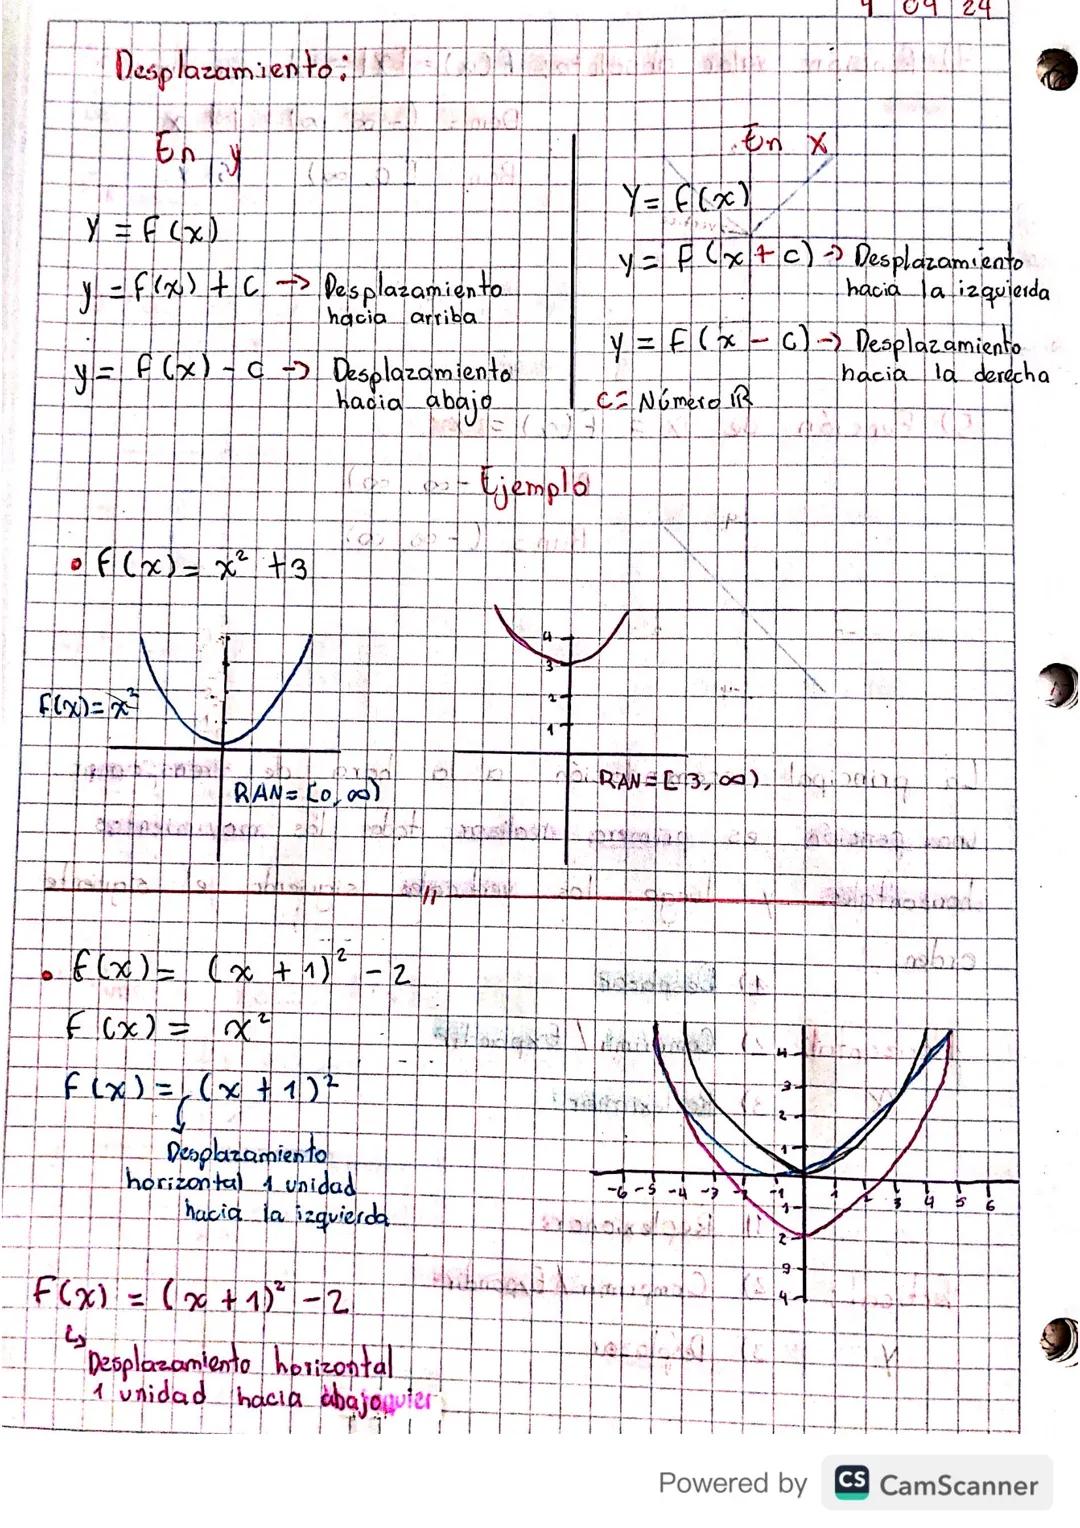 4 04 24
Desplazamiento:
En y
y = f(x)
y = f(x) + c → Desplazamiento
hacia arriba
y = f(x) - c → Desplazamiento
hacia abajo
En x
y = f(x)
y = f(x + c) → Desplazamiento
hacia la izquierda
y = f(x - c) → Desplazamiento
hacia la derecha
c = Número ℝ
Ejemplo
• f(x) = x² + 3
f(x) = x²
RAN = [0, ∞)
4
3
2
1
RAN = [3, ∞)
• f(x) = (x + 1)² - 2
f(x) = x²
f(x) = (x + 1)²
Desplazamiento
horizontal 1 unidad
hacia la izquierda
f(x) = (x + 1)² - 2
↳
Desplazamiento horizontal
1 unidad hacia abajo
4
3
2
1
-6 -5 -4 -3 -2 -1 1 2 3 4 5 6
1-
2-
4-
Powered by CS CamScanner